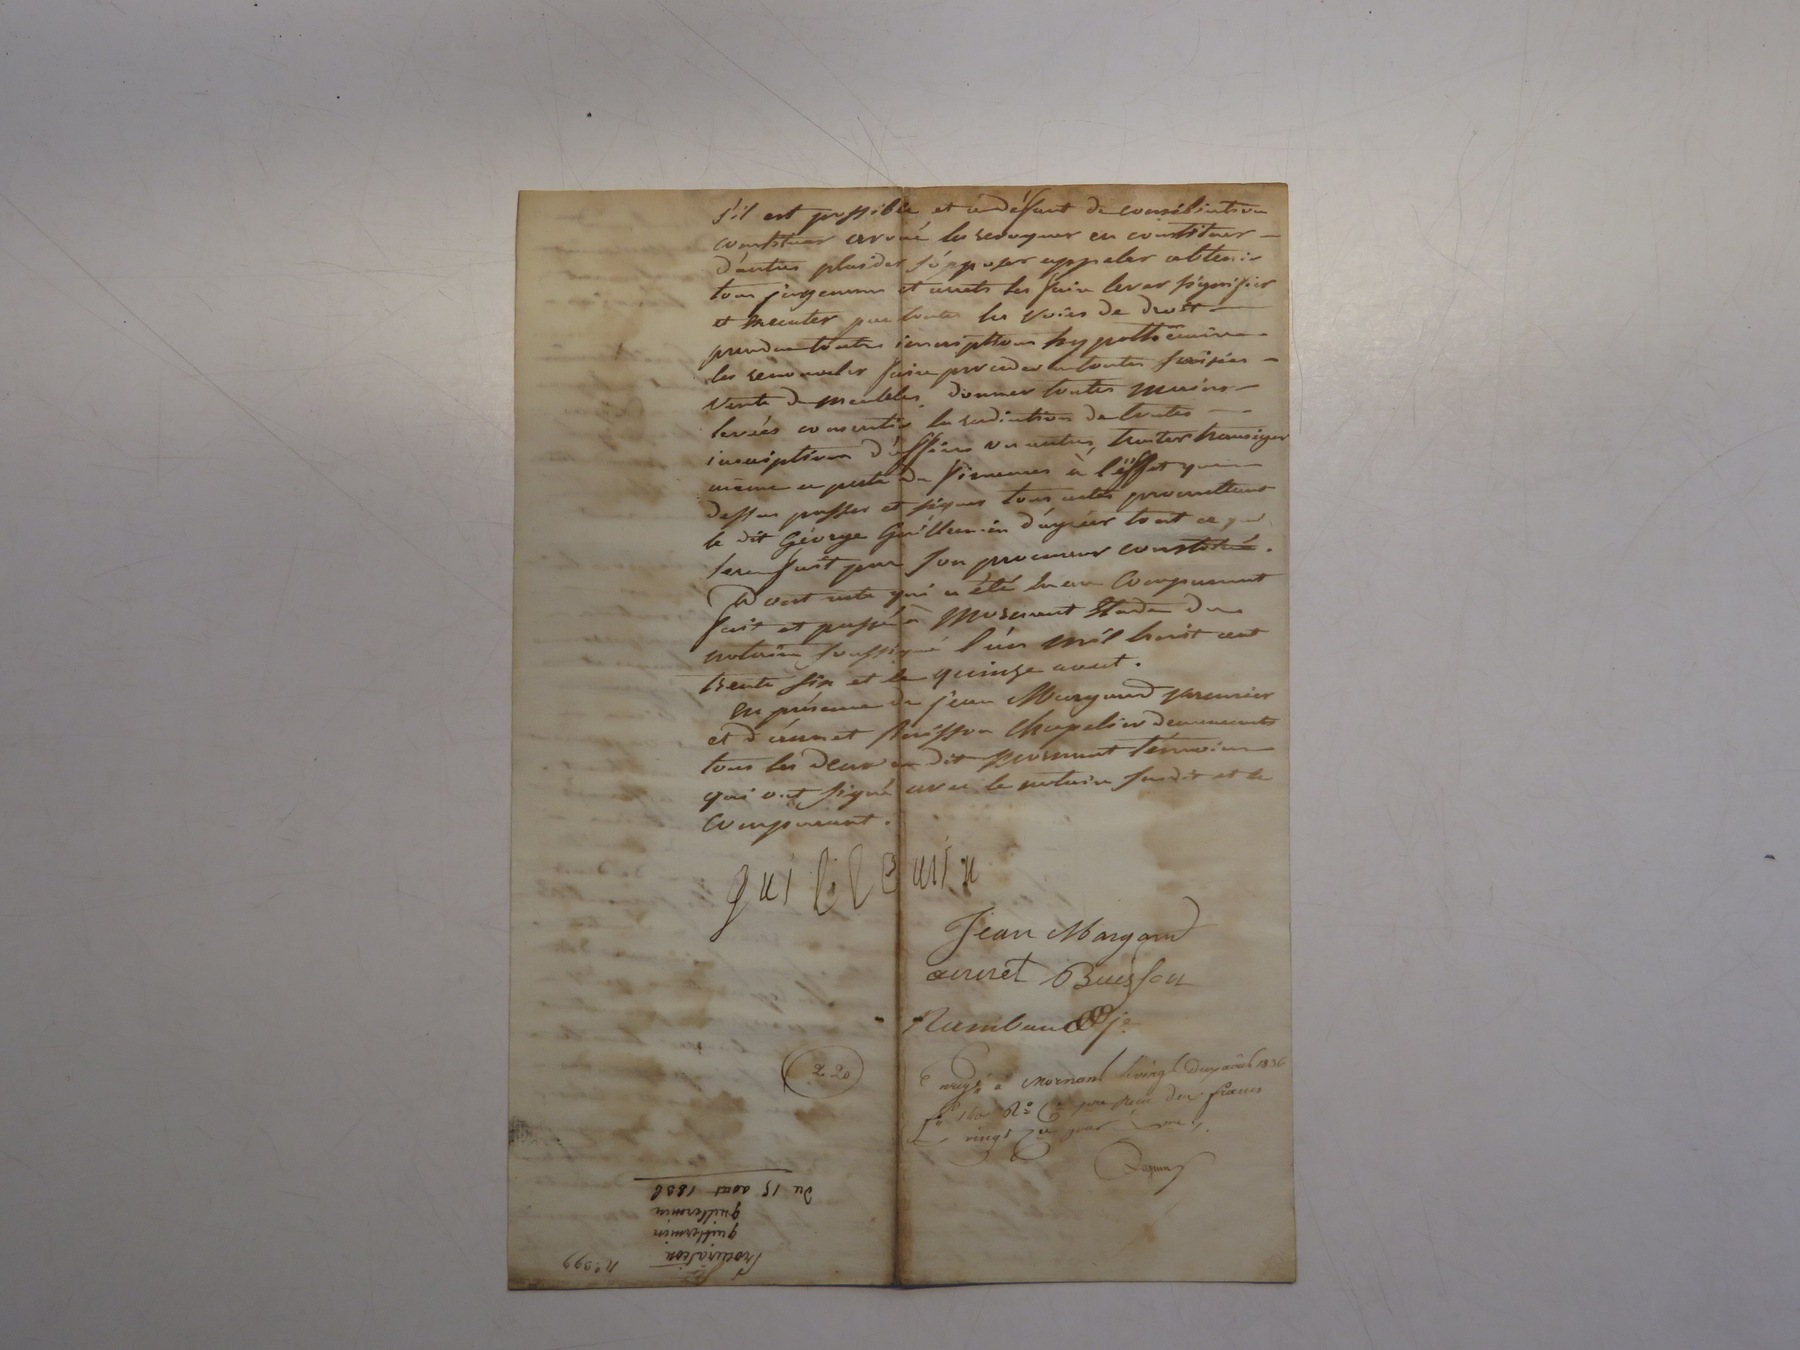 s'il est possible et à défaut de conciliation
constituer avoué les revoquer en constituer
d'autres plaider s'opposer appeler obtenir
tous jugemens et arrets les faire lever signifier
et executer par toutes les voies de droit
prendre toutes inscriptions hypothécaires
les renouveler faire proceder à toutes saisies
vente de meubles, donner toutes mains
levées consentir la radiation de toutes
inscriptions d'office ou autres, traiter transiger
même a perte de finances à l'éffet que
dessus passer et signer tous actes promettant
le dit George Guillermin d'agréer tout ce qui
sera fait par son procureur constitué.
Dont acte qui a été lu au Comparant
fait et passé à Mornant Etude du
notaire soussigné l'an mil huit cent
trente six et le quinze aout.
En présence de jean Margand
et d'annet Buisson Chapelier demeurants
tous les deux au dit Mornant témoins
qui ont signé avec le notaire susdit et le
Comparant.
guillermin
Jean Margand
annet Buisson
Rambaud
2 20
Enregé à Mornant le vingt deux août 1836
fo 160 Ro Ce pre reçu deux francs
vingt ce pour
N° 399
Procuration
guillermin
guillermin
du 15 aout 1836